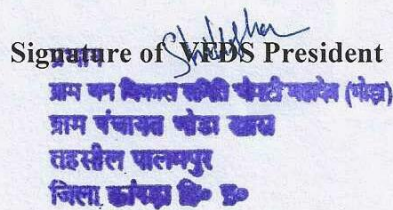 Signature of VFDS President
प्रधान
ग्राम वन विकास समिति महादेव
ग्राम पंचायत भोडा खास
तहसील पालमपुर
जिला कांगड़ा हि० प्र०